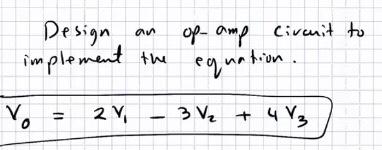 Design an op-amp circuit to
implement the equation.
V₀ = 2V₁ - 3V₂ + 4V₃